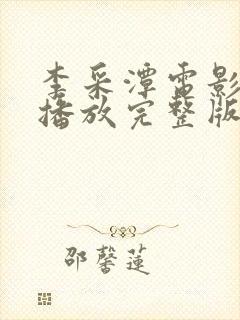 李采潭电影
播放完整版
邵馨莲